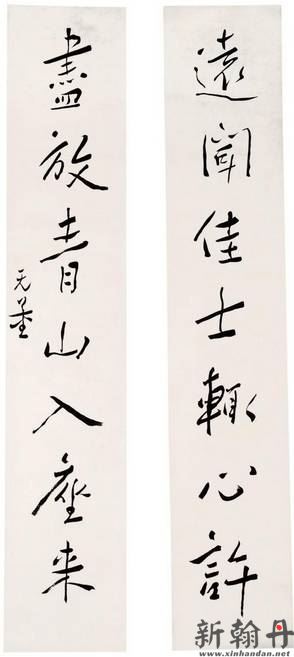 遠聞佳士輒心許
盡放青山入座来
无量
新翰丹
www.xinhandan.net